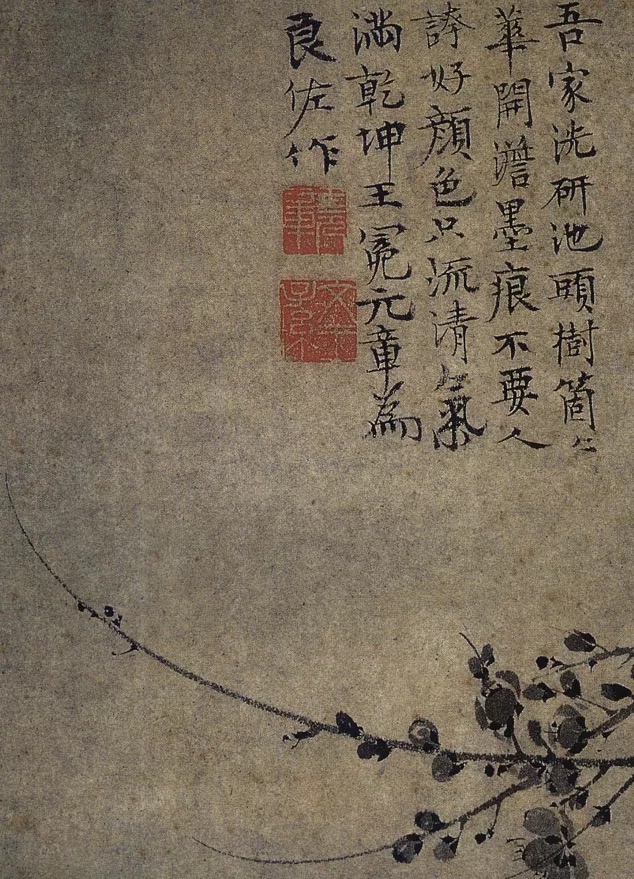 吾家洗研池頭樹箇〻
華開澹墨痕不要人
誇好顔色只流清氣
滿乾坤王冕元章為
良佐作
元章
文王子孫